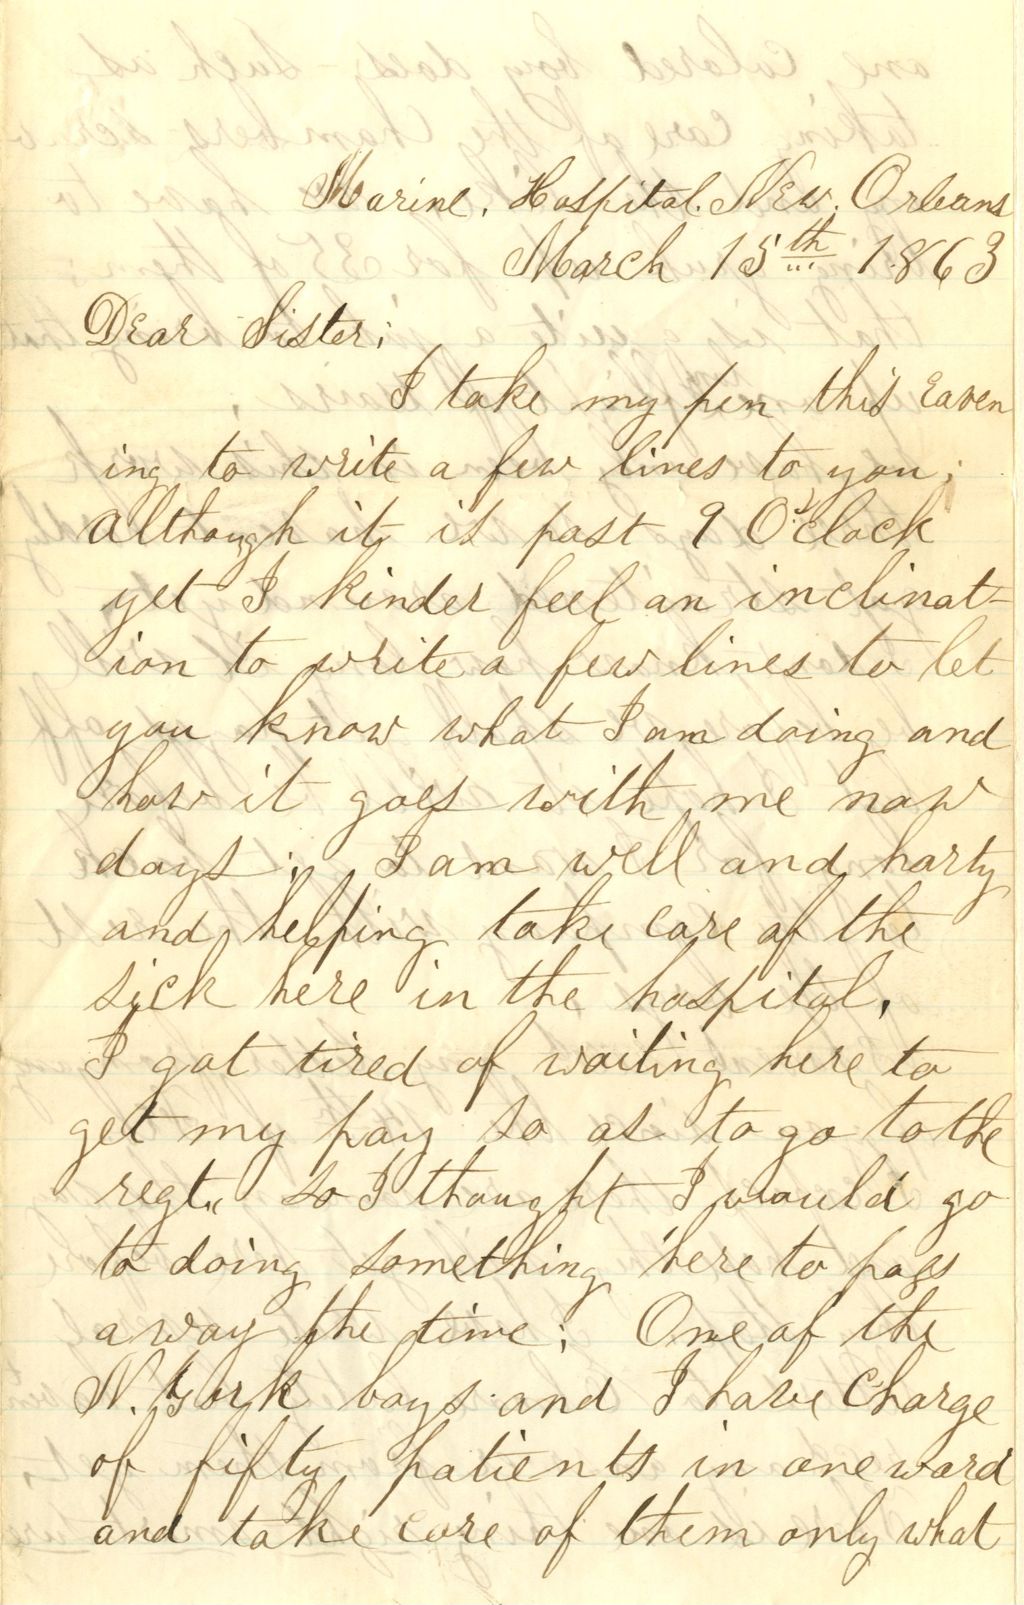 Marine. Hospital. New. Orleans
March 15th 1863
Dear Sister;
I take my pen this eaven
ing to write a few lines to you;
Although it is past 9 O'clock
yet I kinder feel an inclinat-
ion to write a few lines to let
you know what I am doing and
how it goes with me now
days; I am well and harty
and helping take care of the
sick here in the hospital.
I got tired of waiting here to
get my pay so as to go to the
regt. so I thought I would go
to doing something here to pass
away the time; One of the
N. York boys and I have charge
of fifty patients in one ward
and take care of them only what